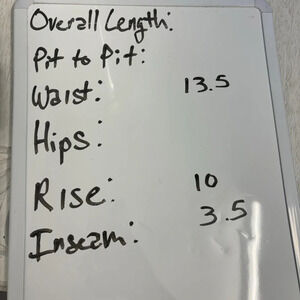 Overall Length:
Pit to Pit:
Waist: 13.5
Hips:
Rise: 10
Inseam: 3.5